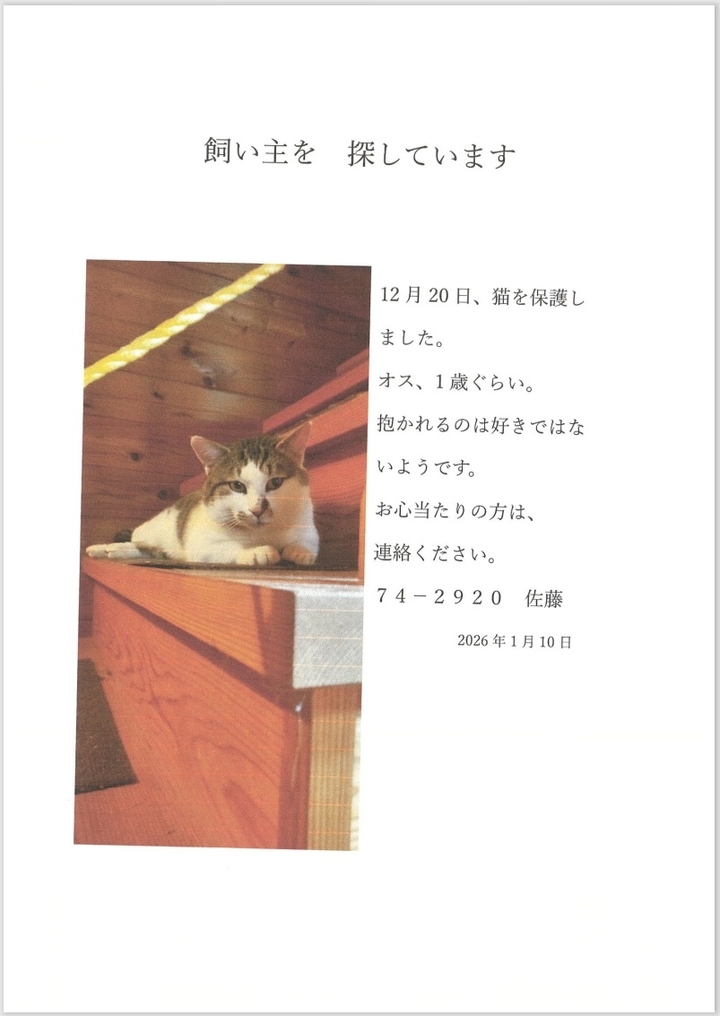 飼い主を　探しています
12月20日、猫を保護し
ました。
オス、1歳ぐらい。
抱かれるのは好きではな
いようです。
お心当たりの方は、
連絡ください。
７４－２９２０　佐藤
2026年1月10日